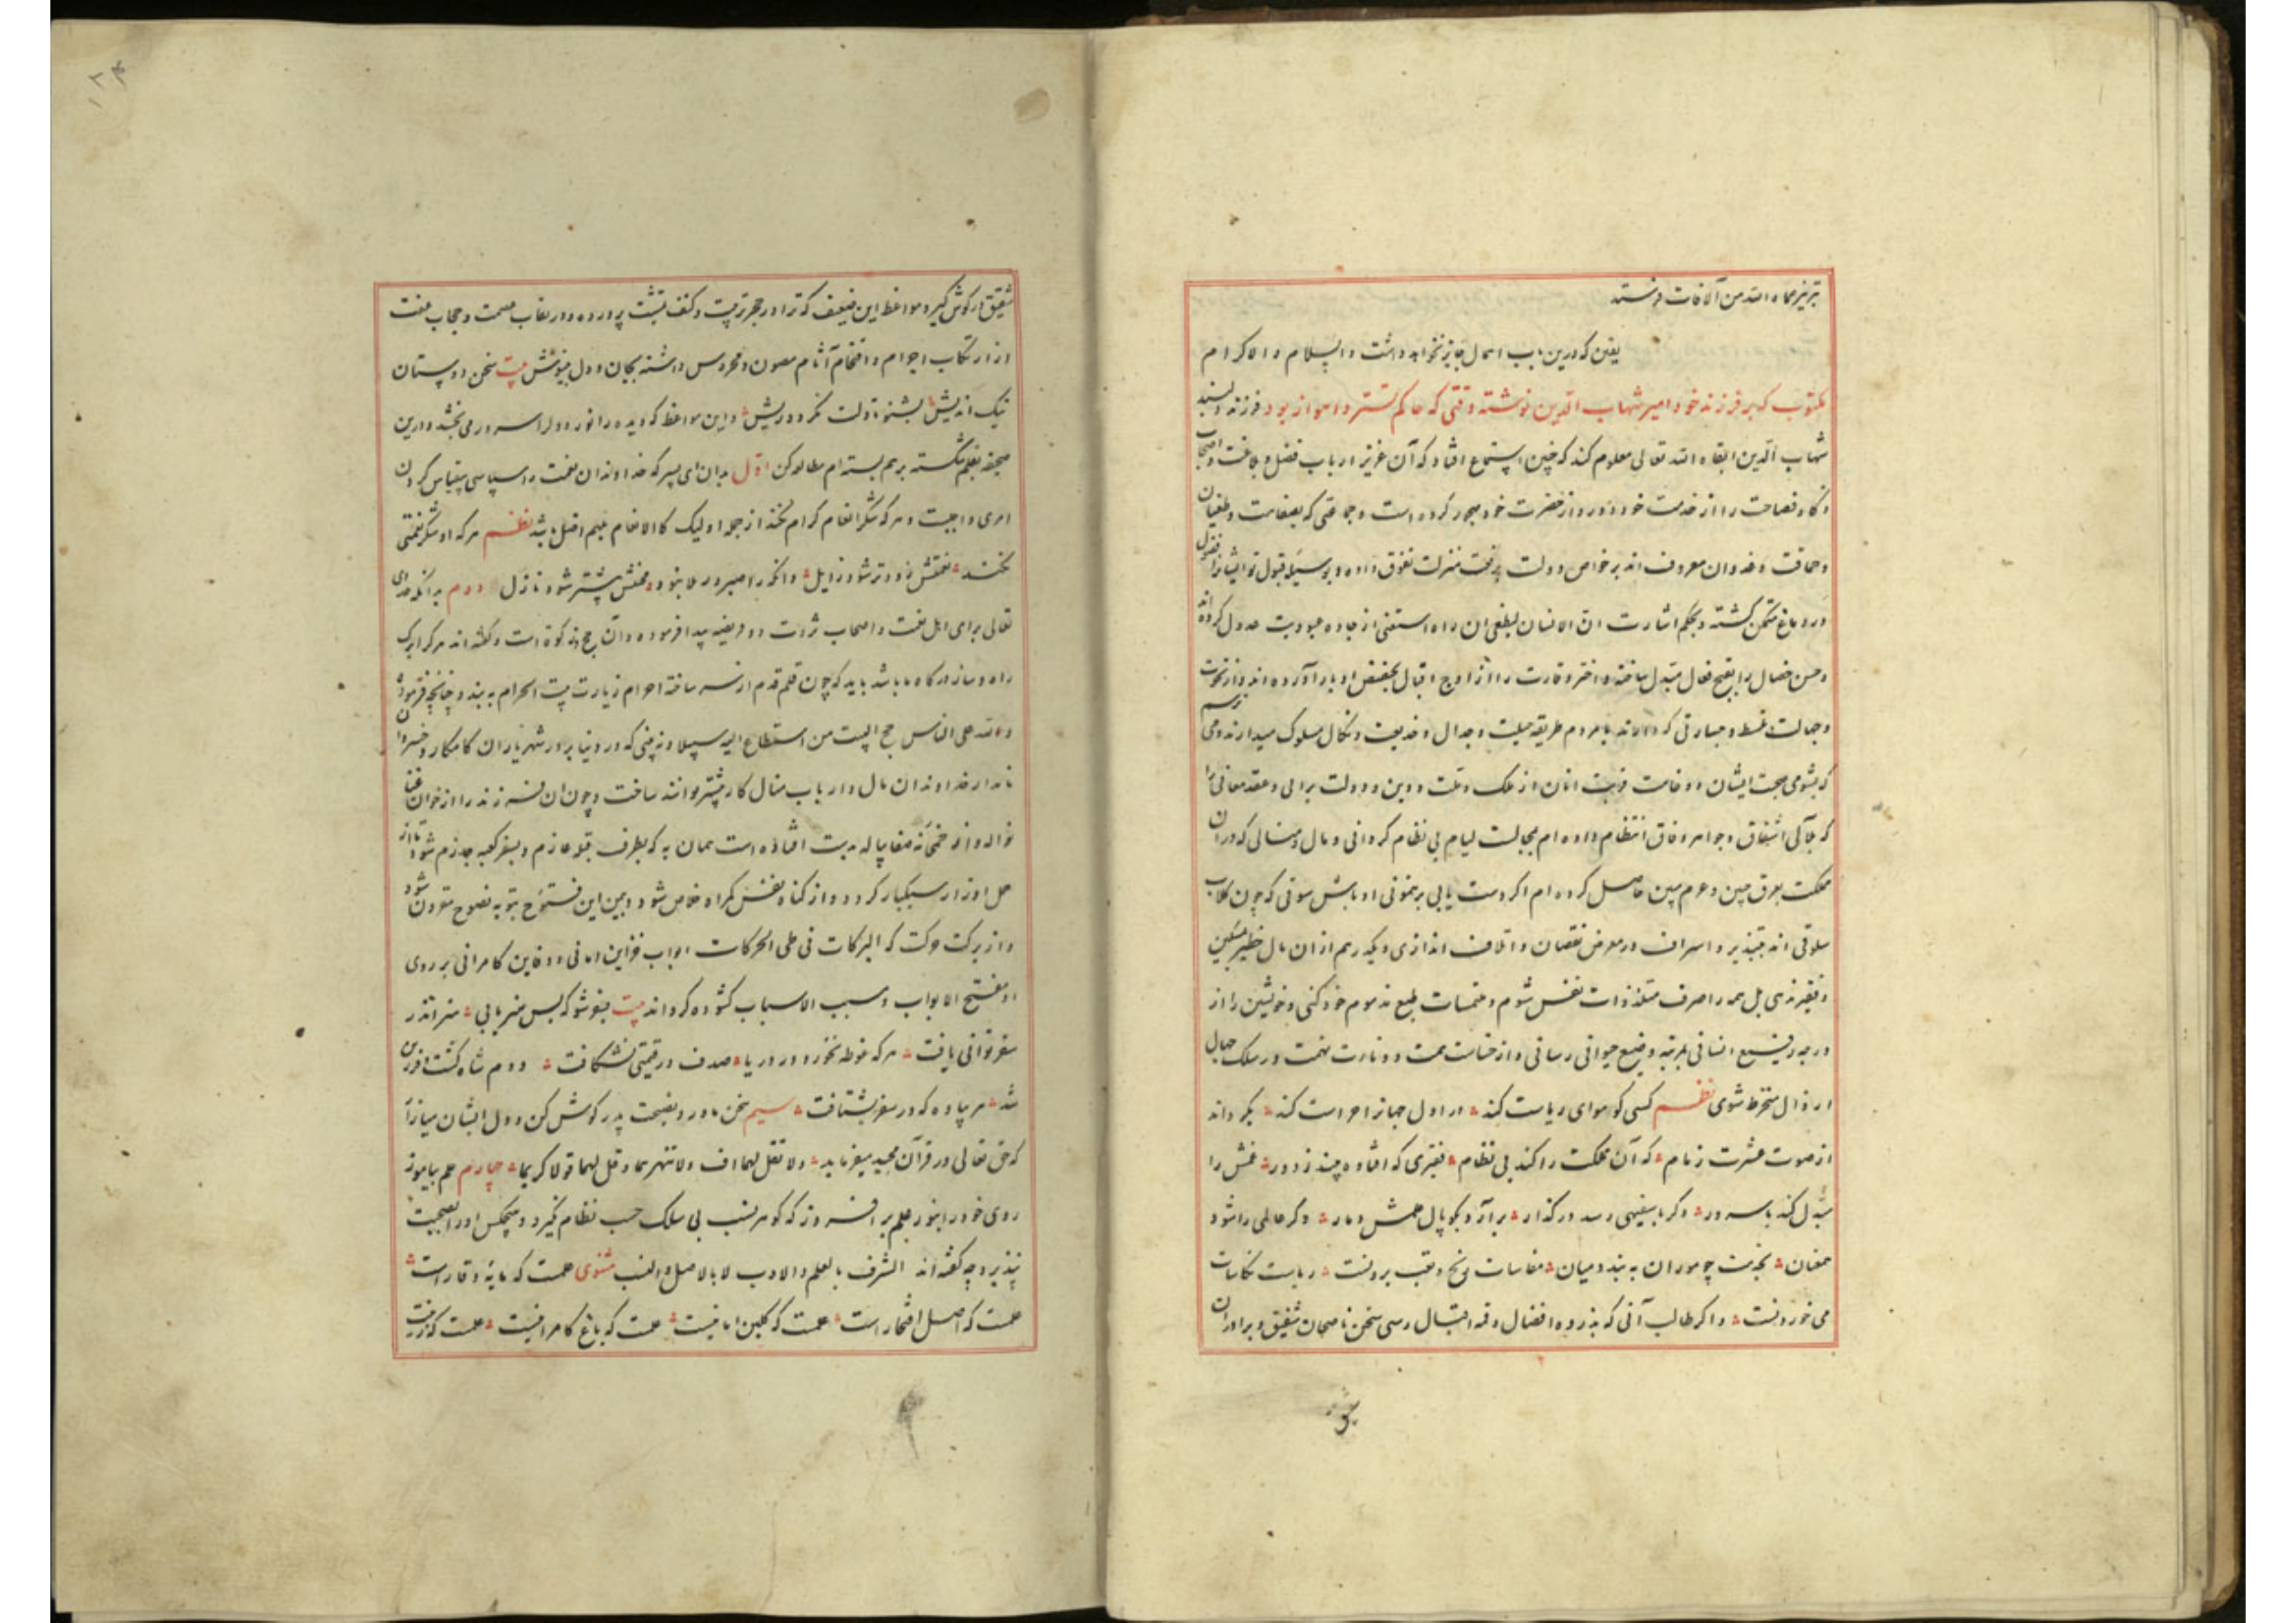 تبریز حماه الله من الآفات فرستد
یقین که درین باب اهمال جایز نخواهد داشت والسلام والاکرام
مکتوب که بر فرزند خود امیر شهاب الدین نوشته وقتی که حاکم تستر و اهواز بود فرزند دلبند
شهاب الدین ابقاه الله تعالی معلوم کند که چنین استماع افتاد که آن عزیز ارباب فضل و بلاغت و اصحاب
ذکا و فصاحت را از خدمت خود دور و از حضرت خود مهجور کرده است و جماعتی که بفضاحت و طغیان
و حماقت و عدوان معروف اند بر خواص دولت رفعت منزلت تفوق داده و بوسیله قبول تو ایشانرا فضول
در دماغ متمکن گشته و بحکم اشارت ان الانسان لیطغی ان راه استغنی از جاده عبودیت عدول کرده اند
و حسن خصال را بقبح فعال مبدل ساخته و اختر وقارت را از اوج اقبال بحضیض ادبار آورده اند و از نخوت
و جهالت غلط و جسارتی که دارند با مردم طریقه حیلت و جدال و خدیعت و نکال مسلوک میدارند و می ترسم
که بشومی صحبت ایشان و وخامت قربت اینان از ملک و ملت و دین و دولت برایی و عقد معانی را
که بلآلی اشفاق و جواهر وفاق انتظام داده ام بمجالست لیام بی نظام کردانی و مال و منالی که در آن
مملکت بعرق جبین و عزم مبین حاصل کرده ام اکر دست یابی برهنمونی اوباش سوقی که چون کلاب
سلوقی اند بتبذیر و اسراف در معرض نقصان و اتلاف اندازی و یکدرهم از ان مال خطیر بمسکین
و فقیر ندهی بل همه را صرف متلذذات نفس شوم و ملتمسات طبع مذموم خود کنی و خویشتن را از
درجه رفیع انسانی بمرتبه وضیع حیوانی رسانی و از خساست همت و دناءت نهمت در سلک جهال
ارذال منخرط شوی نظم کسی کو هوای ریاست کند در اول جهانرا حراست کند بکرداند
از صوت عشرت زمام که آن مملکت را کند بی نظام فقیری که افتاده بیند ز دور غمش را
مبدل کند با سرور وکر با سفیهی رسد در کذار برآرد بکوپال همش دمار وکر عالمی را شود
همعنان بخدمت چو موران به بندد میان مقاسات رنج و تعب بردنست ریاست نکاسات
می خوردنست و اکر طالب آنی که بذروه افضال و قله اقبال رسی سخن ناصحان شفیق و برادران
شقیق در کوش کیر و مواعظ این ضعیف که ترا در حجر تربیت و کنف تثبت پرورده و در نقاب عصمت و حجاب عفت
از ارتکاب اجرام و اقتحام آثام مصون و محروس داشته بجان و دل بنیوش بیت سخن دوستان
نیک اندیش بشنو تا دلت نکردد ریش و این مواعظ که دیده را نور و دلرا سرور می بخشد و درین
صحیفه بقلم شکسته برهم بسته ام مطالعه کن اول بدان ای پسر که خداوندان نعمت را سپاسی بیقیاس کردن
امری واجبست و هر که شکر انعام کرام نکند از جمله اولیک کالانعام بل هم اضل باشد نظم هر که او شکر نعمتی
نکند نعمتش زودتر شود زایل وانکه را صبر در بلا نبود محنتش بیشتر شود نازل دوم بدانکه خدای
تعالی برای اهل نعمت و اصحاب ثروت دو فریضه پیدا فرموده و آن حج و زکوة است و کفته اند هر کرا برک
راه و ساز درکاه ما باشد باید که چون قلم قدم از سر ساخته احرام زیارت بیت الحرام به بندد چنانچه فرموده
ولله علی الناس حج البیت من استطاع الیه سبیلا و نه بینی که در دنیا برادر شهریاران کامکار و خسروان
نامدار خداوندان مال و ارباب منال کار بیشتر توانند ساخت و چون ان فرزند را از خوان غنا
نواله و از خمخانه صفا پیاله بدست افتاده است همان به که بطرف قبله عازم و بسفر کعبه جازم شود تا از
حمل اوزار سبکبار کردد و از کناه نفس کمراه خلاص شود و بیمن این فتوح بتوبه نصوح مقرون شود
و از برکت حرکت که البرکات فی طی الحرکات ابواب خزاین امانی و دفاین کامرانی بر روی
او مفتح الابواب و مسبب الاسباب کشوده کرداند بیت بسفر شو که بس هنر یابی هنر اندر
سفر توانی یافت هر که غوطه نخورد در دریا صدف در قیمتی نشکافت دوم شاه کشت و فرزین
شد هر پیاده که در سفر بشتافت سیم سخن مادر و نصیحت پدر کوش کن و دل ایشان میازار
که حق تعالی در قرآن مجید میفرماید ولا تقل لهما اف ولا تنهرهما وقل لهما قولا کریما چهارم علم بیاموز
روی خود را بنور علم برافروز که کوهر نسب بی سلک حسب نظام نکیرد و هیچکس او را بصحبت
نپذیرد چه کفته اند الشرف بالعلم والادب لا بالاصل والنسب مثنوی علمست که مایه وقارست
علمست که اصل افتخار است علمست که کلبن امانیست علمست که باغ کامرانیست علمست که